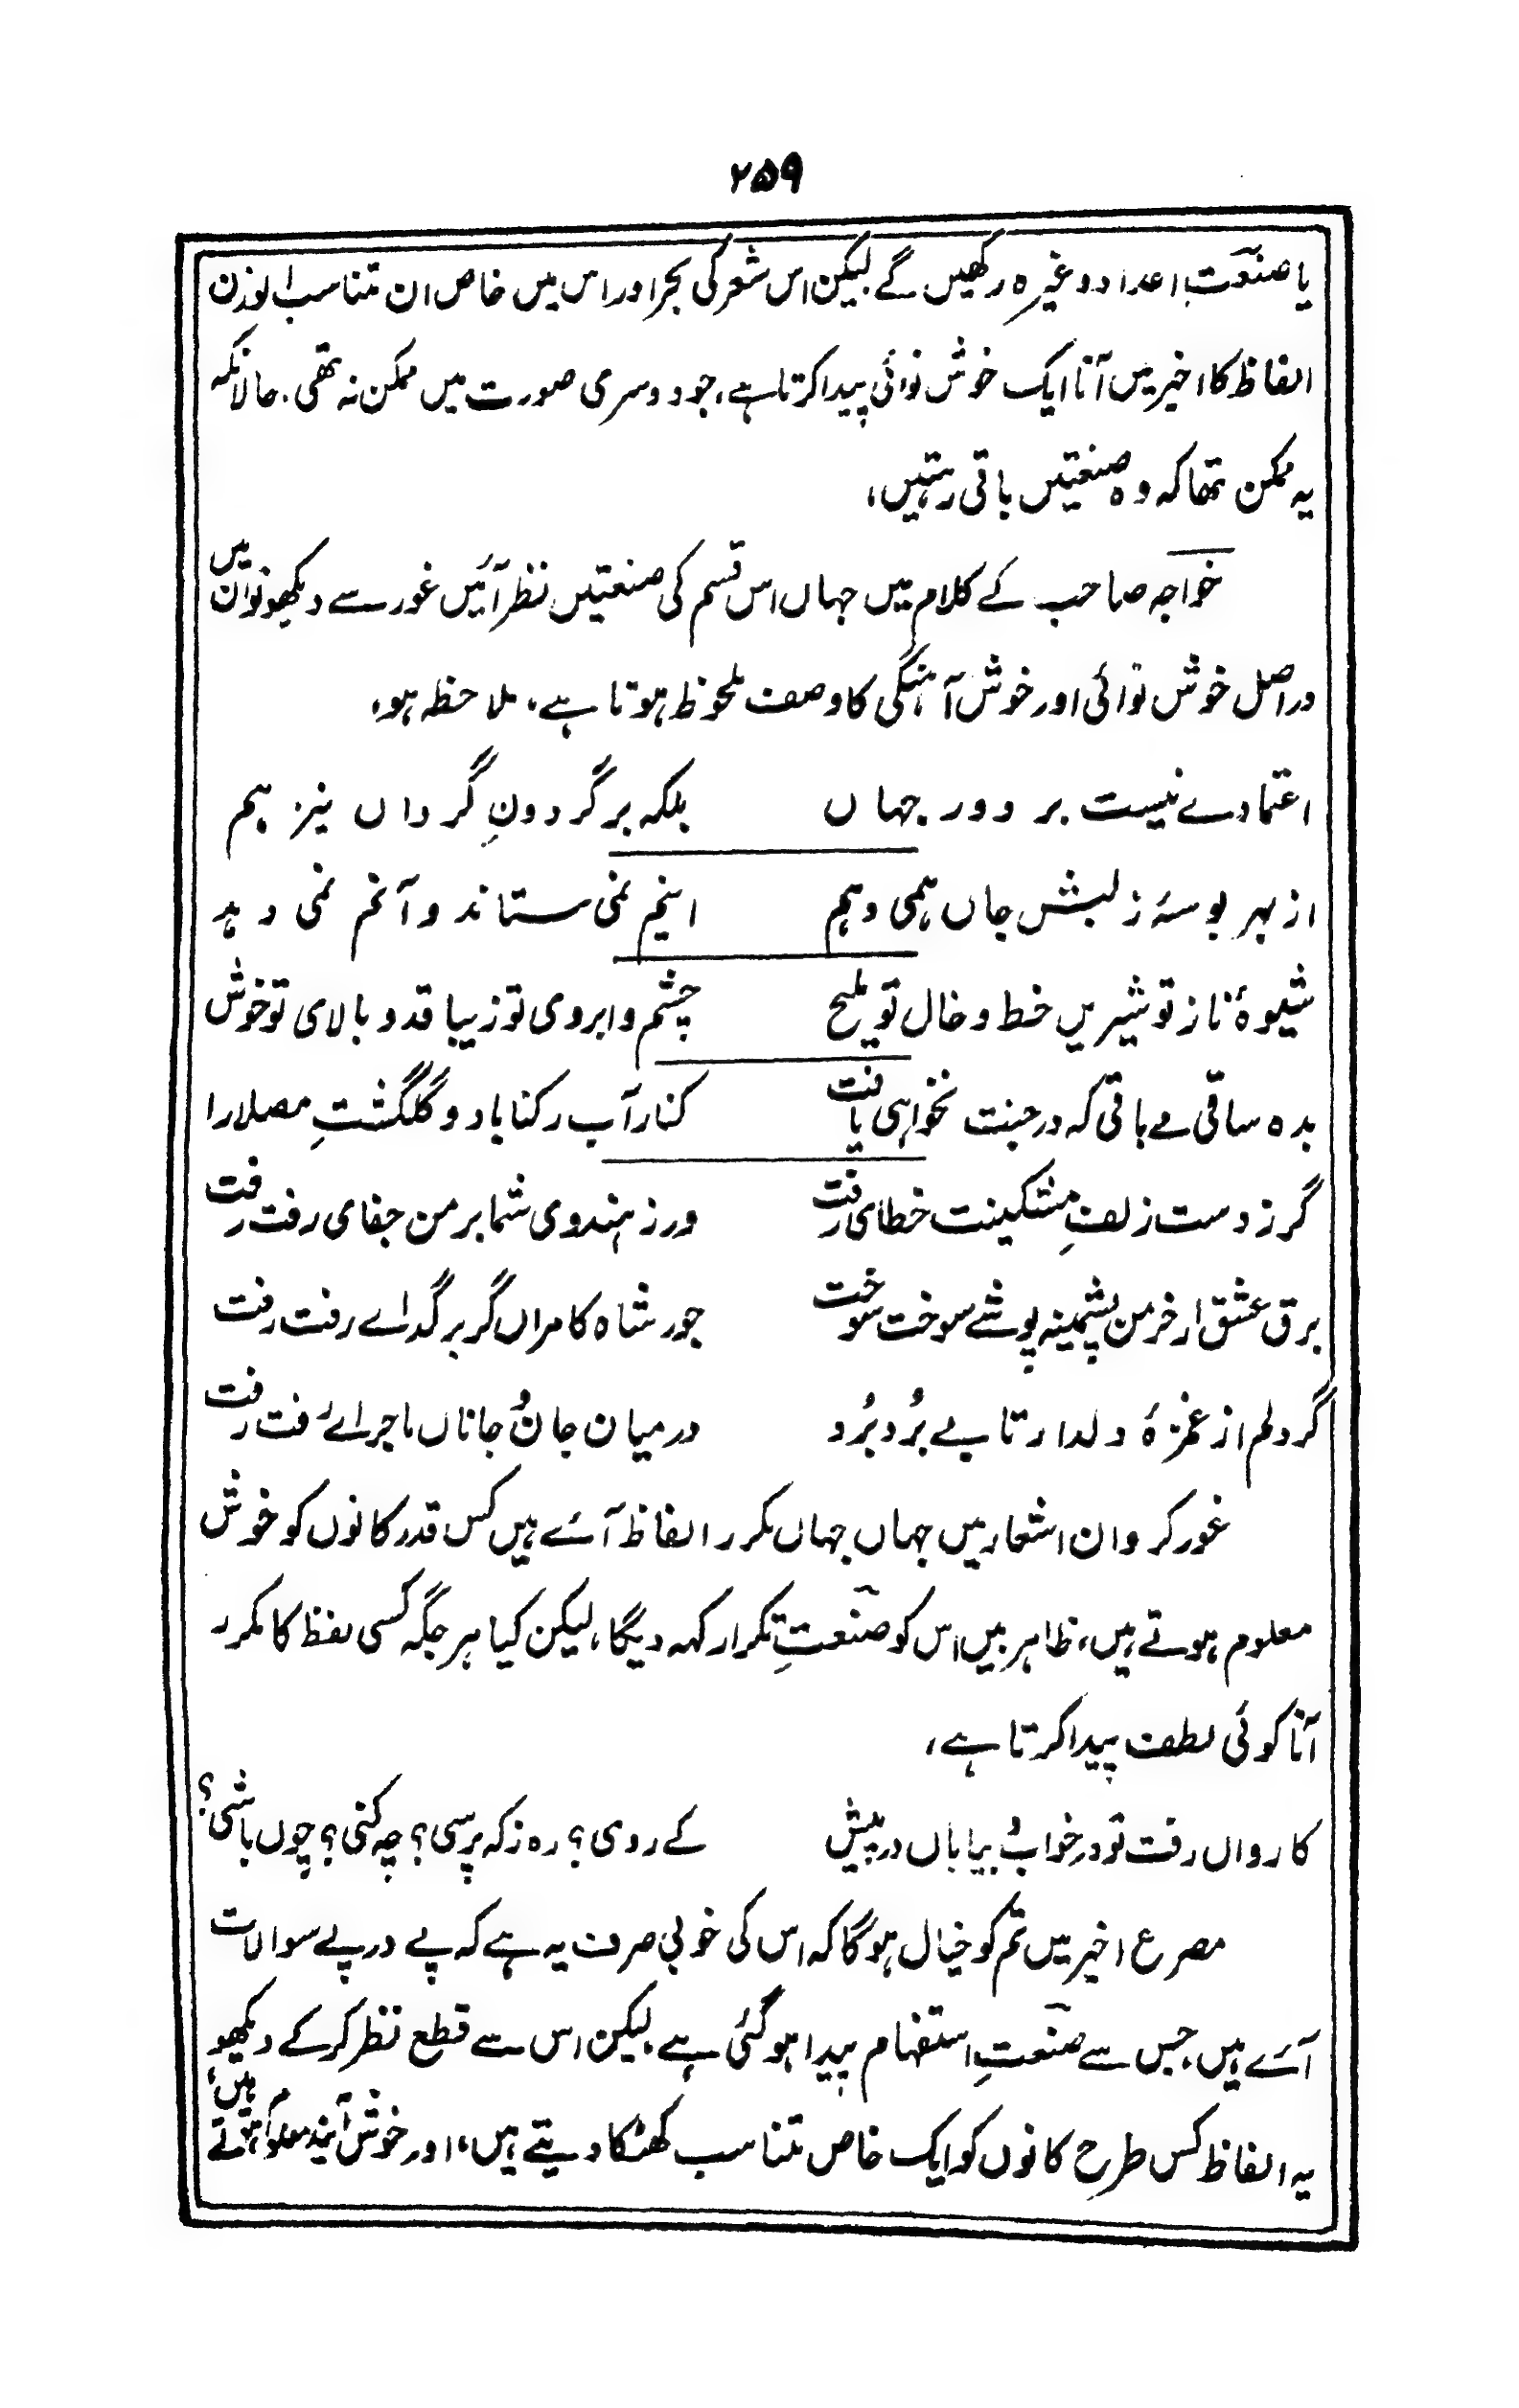 ۲۵۹
یا صنعتِ اعداد وغیرہ رکھیں گے لیکن اس شعر کی بحر اور اس میں خاص ان متناسب الوزن
الفاظ کا اخیر میں آنا ایک خوش نوائی پیدا کرتا ہے، جو دوسری صورت میں ممکن نہ تھی۔ حالانکہ
یہ ممکن تھا کہ وہ صنعتیں باقی رہتیں،
خواجہ صاحب کے کلام میں جہاں اس قسم کی صنعتیں نظر آئیں غور سے دیکھو تو ان میں
دراصل خوش نوائی اور خوش آہنگی کا وصف ملحوظ ہوتا ہے، ملاحظہ ہو،
اعتمادے نیست بر دور جہاں بلکہ بر گردونِ گرداں نیز ہم
از بہر بوسۂ ز لبش جاں ہمی دہم اینم نمی ستاند و آنم نمی دہد
شیوۂ ناز تو شیریں خط و خال تو ملیح چشم و ابروی تو زیبا قد و بالای تو خوش
بدہ ساقی مے باقی کہ در جنت نخواہی یافت کنار آب رکناباد و گلگشتِ مصلا را
گر ز دست زلفِ مشکینت خطای رفت رفت ور ز ہندوی شما بر من جفای رفت رفت
برق عشق ار خرمن پشمینہ پوشے سوخت سوخت جور شاہ کامراں گر بر گداے رفت رفت
گر دلم از غمزۂ دلدار تابے بُرد بُرد درمیان جان و جاناں ماجراے رفت رفت
غور کرو ان اشعار میں جہاں جہاں مکرر الفاظ آئے ہیں کس قدر کانوں کو خوش
معلوم ہوتے ہیں، ظاہر بیں اس کو صنعتِ تکرار کہہ دیگا، لیکن کیا ہر جگہ کسی لفظ کا مکرر
آنا کوئی لطف پیدا کرتا ہے،
کارواں رفت تو در خواب و بیاباں در پیش کے روی؟ رہ ز کہ پرسی؟ چہ کنی؟ چوں باشی؟
مصرع اخیر میں تم کو خیال ہوگا کہ اس کی خوبی صرف یہ ہے کہ پے در پے سوالات
آئے ہیں، جس سے صنعتِ استفہام پیدا ہوگئی ہے لیکن اس سے قطع نظر کر کے دیکھو
یہ الفاظ کس طرح کانوں کو ایک خاص متناسب کھٹکا دیتے ہیں، اور خوش آیند معلوم ہوتے ہیں،